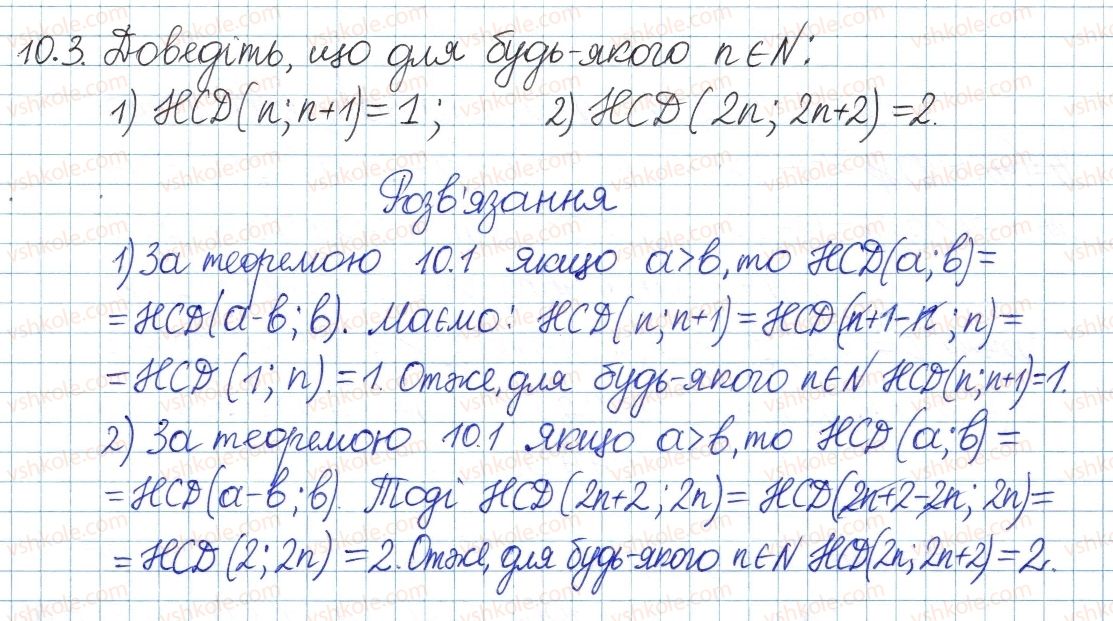 10.3. Доведіть, що для будь-якого n∈N:
1) НСD(n; n+1)=1; 2) НСD(2n; 2n+2)=2.
Розв'язання
1) За теоремою 10.1 якщо a>b, то НСD(a; b)=
=НСD(a-b; b). Маємо: НСD(n; n+1)=НСD(n+1-n; n)=
=НСD(1; n)=1. Отже, для будь-якого n∈N НСD(n; n+1)=1.
2) За теоремою 10.1 якщо a>b, то НСD(a; b)=
=НСD(a-b; b) Тоді НСD(2n+2; 2n)=НСD(2n+2-2n; 2n)=
=НСD(2; 2n)=2. Отже, для будь-якого n∈N НСD(2n; 2n+2)=2.